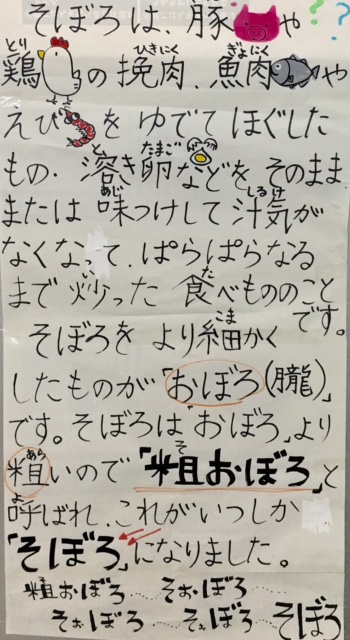 そぼろは、豚や
鶏の挽肉、魚肉や
えびをゆでてほぐした
もの・溶き卵などをそのまま、
または味つけして汁気が
なくなって、ぱらぱらなる
まで炒った食べもののこと
です。
そぼろをより細かく
したものが「おぼろ(朧)」
です。そぼろは「おぼろ」より
粗いので「粗おぼろ」と
呼ばれ、これがいつしか
「そぼろ」になりました。
粗おぼろ〜そぉおぼろ
そぉぼろ〜そぉぼろ〜そぼろ